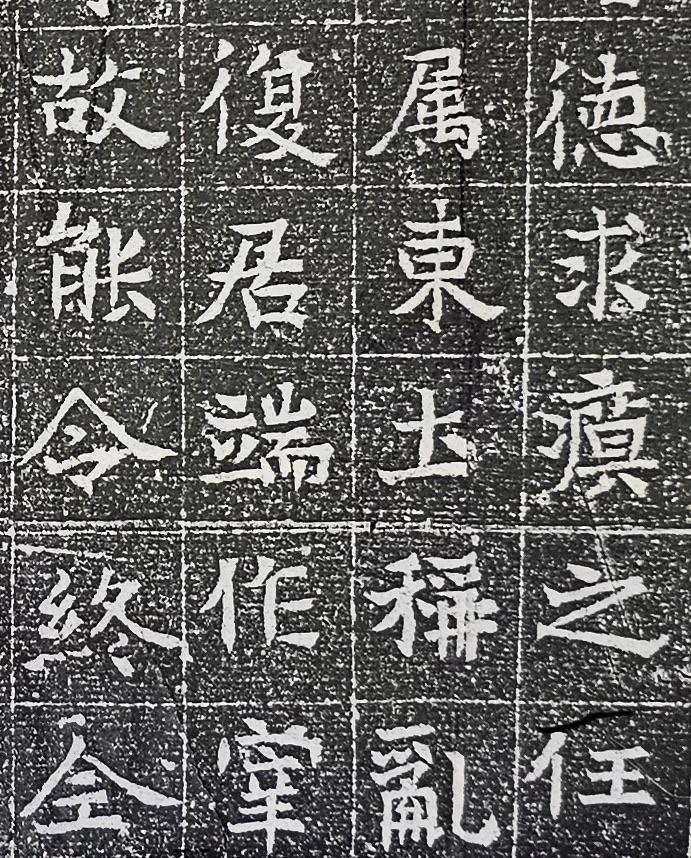 徳求瘼之任
属東土稱亂
復居端作宰
故能令終全